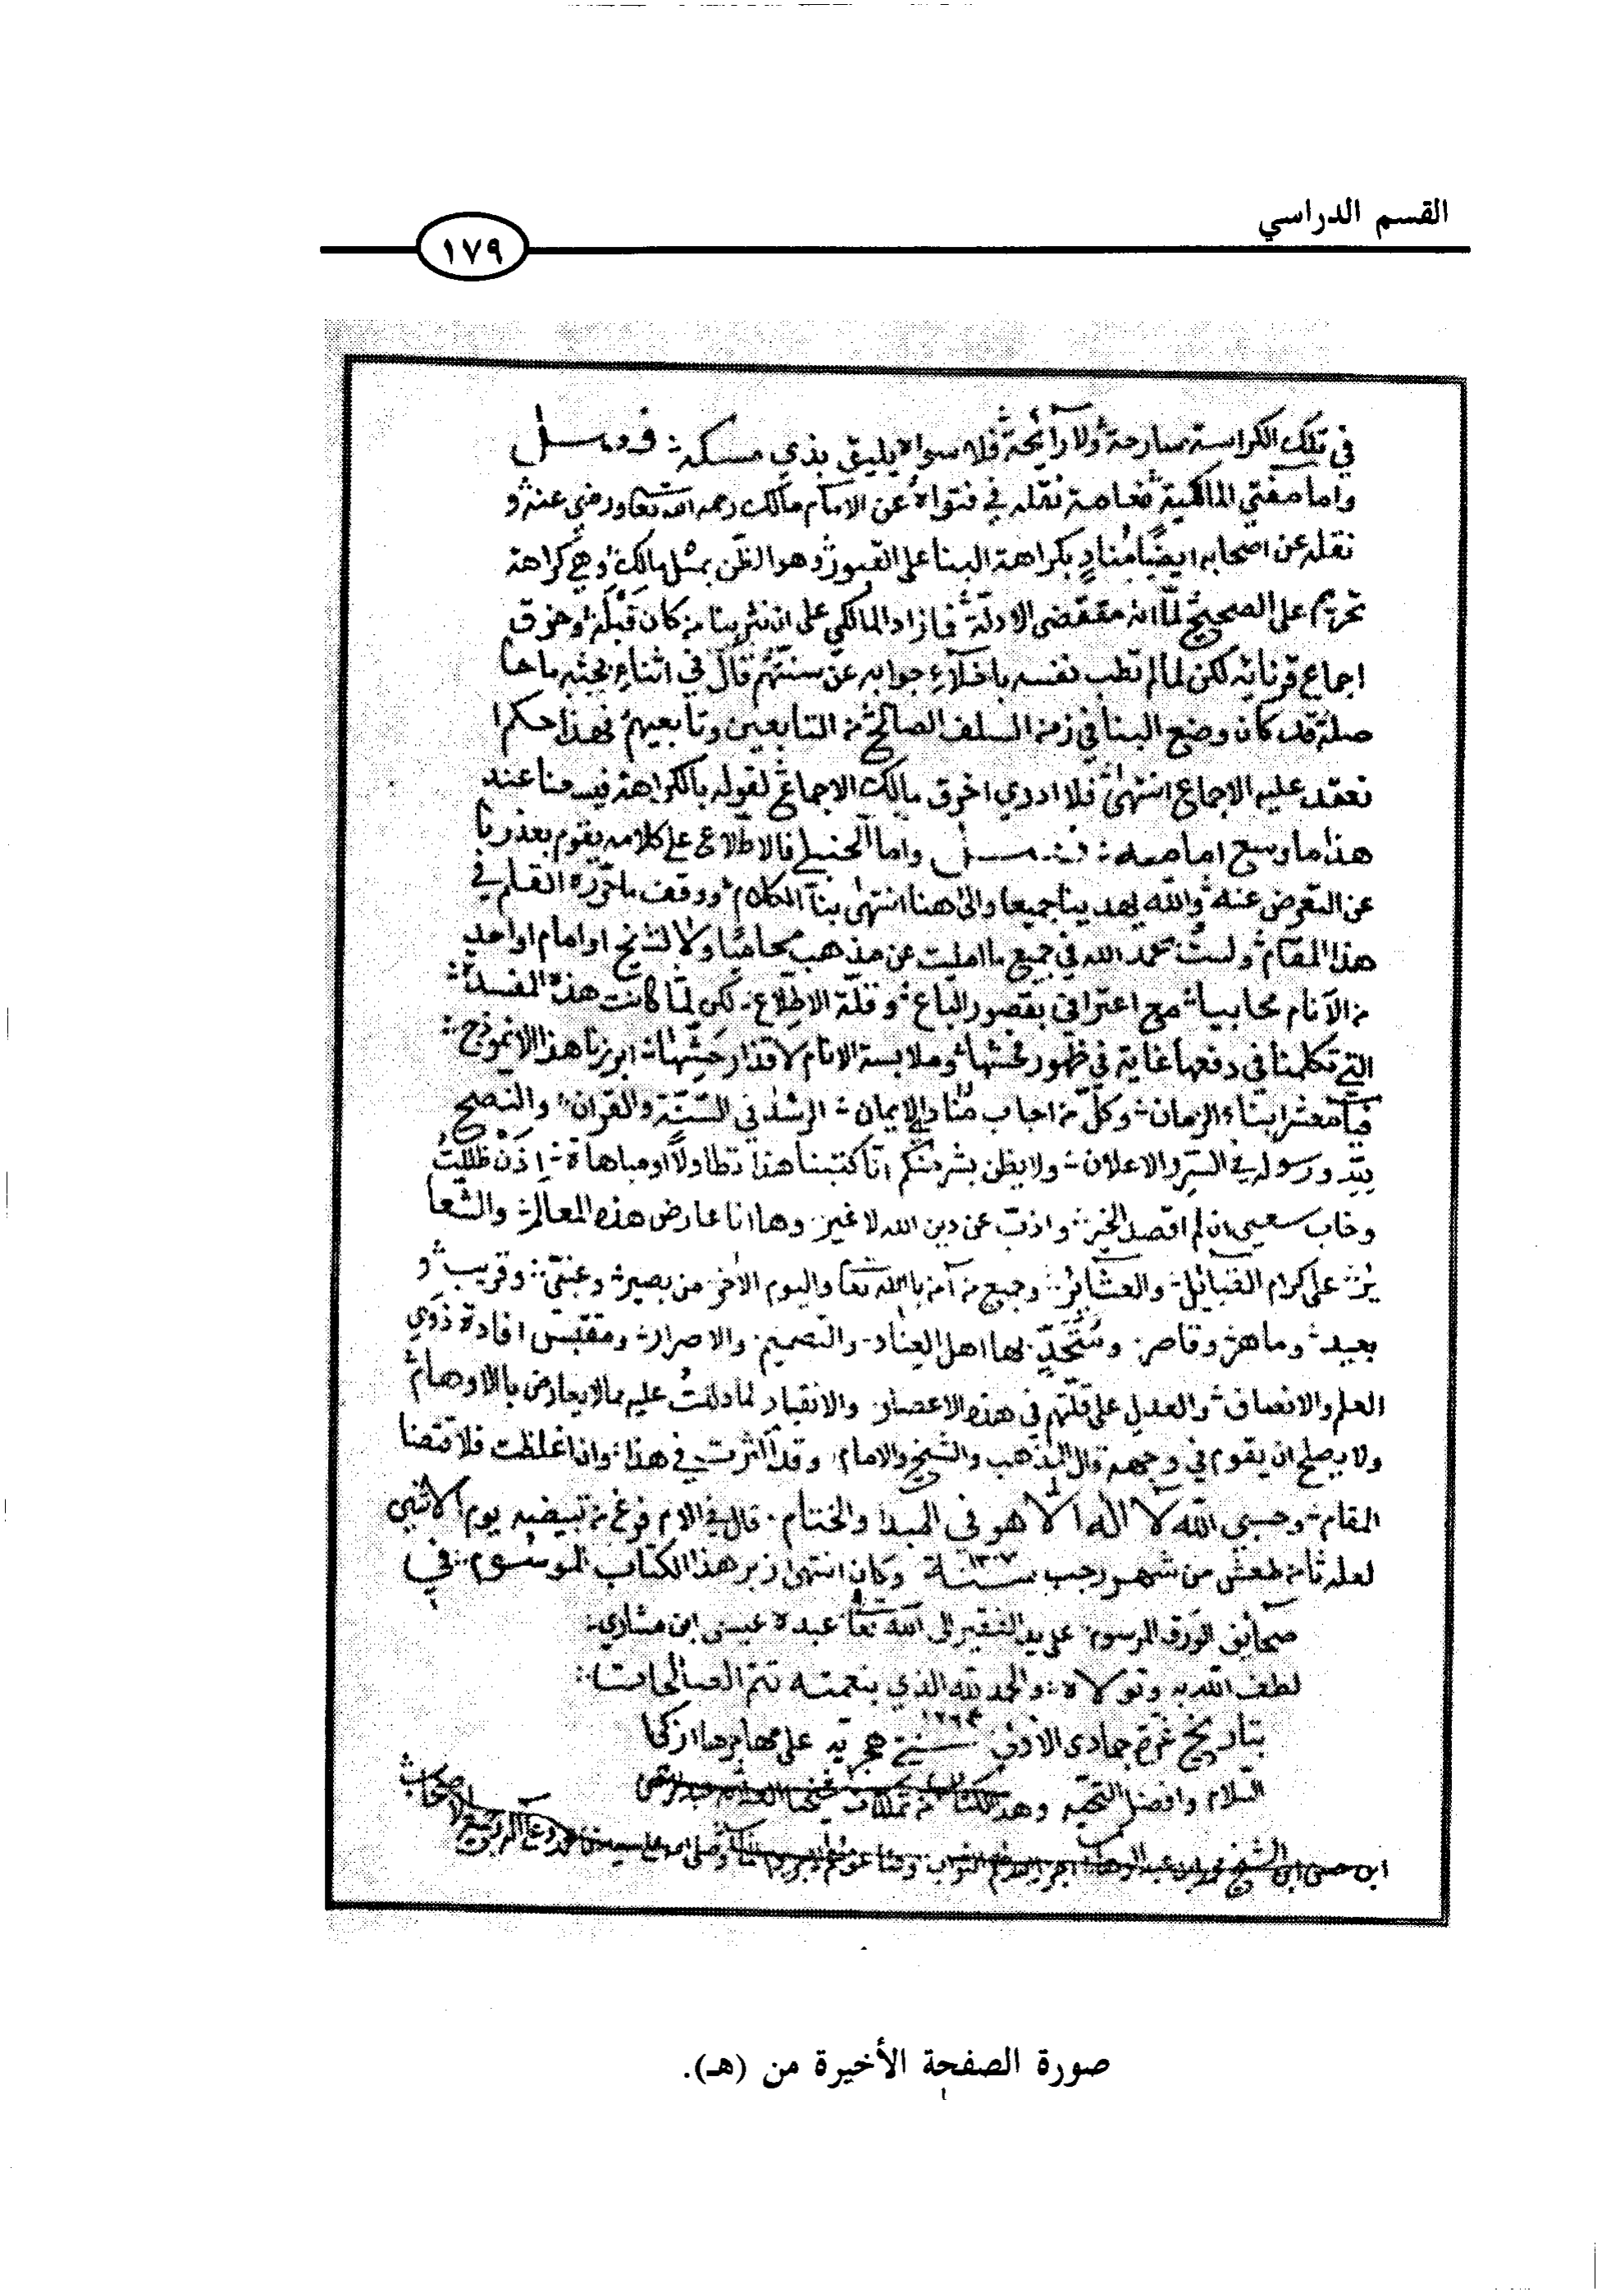 القسم الدراسي
١٧٩
في تلك الكراسة سارحة ولا رائحة فلا سوا لا يليق بذي مسكه فصل
واما مفتي المالكية فغاصة نقله في فتواه عن الامام مالك رحمه الله تعا ورضي عنه و
نقله عن اصحابه ايضا مناد بكراهة البنا على القبور وهو الظن بمثل مالك وهي كراهة
تحريم على الصحيح لما انه مقتضى الادلة فما زاد المالكي على ان نثر بنا من كان قبله وخرق
اجماع قرنائه لكن لما لم تطب نفسه باخلاء جوابه عن سنتهم قال في اثناء بحثه ما حا
صله قد كان وضع البنا في زمن السلف الصالح من التابعين وتابعيهم فهذا حكم
نعقد عليه الاجماع انتهى فلا ادري اخرق مالك الاجماع لقوله بالكراهة فيسعنا عند
هذا ما وسع امامه فصل واما الحنبلي فالاطلاع على كلامه يقوم بعذرنا
عن التعرض عنه والله يهدينا جميعا والى هنا انتهى بنا الكلام ووقف ما حرره القلم في
هذا المقام ولست بحمد الله في جميع ما امليت عن مذهب محاميا ولا لشيخ او امام او احد
من الانام محابيا مع اعترافي بقصور الباع وقلة الاطلاع لكن لما كانت هذه المفسدة
التي تكلمنا في دفعها غاية في ظهور فحشها وملابسة الانام لاقذار حشها ابرزنا هذا الانموذج
فيا معشر ابناء الزمان وكل من اجاب منادي الايمان الرشد في السنة والقران والنصح
لله ورسوله في السر والاعلان ولا يظن بشر منكم انا كتبنا هذا تطاولا او مباهاة اذن ظللت
وخاب سعيي ان لم اقصد الخير واذب عن دين الله لا غير وها انا عارض هذه المعالم والشعا
ئر على كرام القبائل والعشائر وجميع من آمن بالله تعا واليوم الاخر من بصير وغبي وقريب و
بعيد وماهر وقاصر ومتحد بها اهل العناد والتصميم والاصرار ومقتبس افادة ذوي
العلم والانصاف والعدل على قلتهم في هذه الاعصار والانقياد لما دللت عليه بما لا يعارض بالاوهام
ولا يصلح ان يقوم في وجهه قال المذهب والشيخ والامام وقد اكثرت في هذا وان اغلظت فلاقتضا
المقام وحسبي الله لا اله الا هو في المبدا والختام قال في الام فرغ من تبيضه يوم الاثنين
لعله ثامن عشر من شهر رجب سنة ١٢٠٧ وكان انتهى زبر هذا الكتاب الموسوم في
صحائف الورق المرسوم على يد الفقير الى الله تعا عبده عيسى ابن مشاري
لطف الله به وتولاه والحمد لله الذي بنعمته تتم الصالحات
بتاريخ غرة جمادى الاولى سنة ١٢٦٣ هجرية على مهاجرها ازكى
السلام وافضل التحية وهذا الكتاب من تملكات شيخنا
ابن حسن ابن الشيخ محمد ابن عبد الوهاب
صورة الصفحة الأخيرة من (هـ).